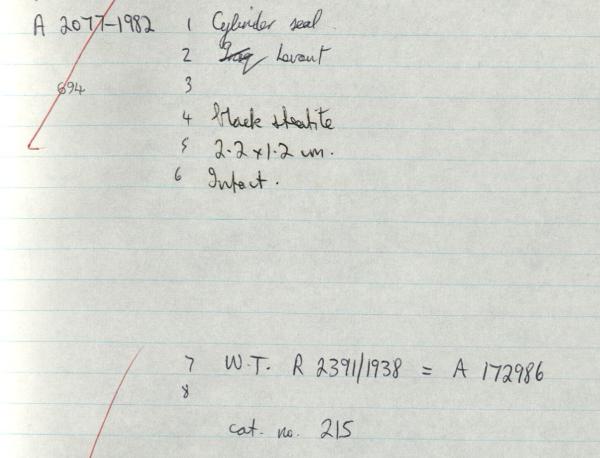 A 2077-1982 1 Cylinder seal
2 Iraq Levant
694 3
4 black steatite
5 2.2 x 1.2 cm.
6 Intact.
7 W.T. R 2391/1938 = A 172986
8
cat. no. 215